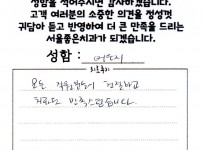 성함을 적어주시면 감사하겠습니다.
고객 여러분의 소중한 의견을 정성껏
귀담아 듣고 반영하여 더 큰 만족을 드리는
서울좋은치과가 되겠습니다.
성함 :
모든 직원분들이 친절하고
만족스럽습니다